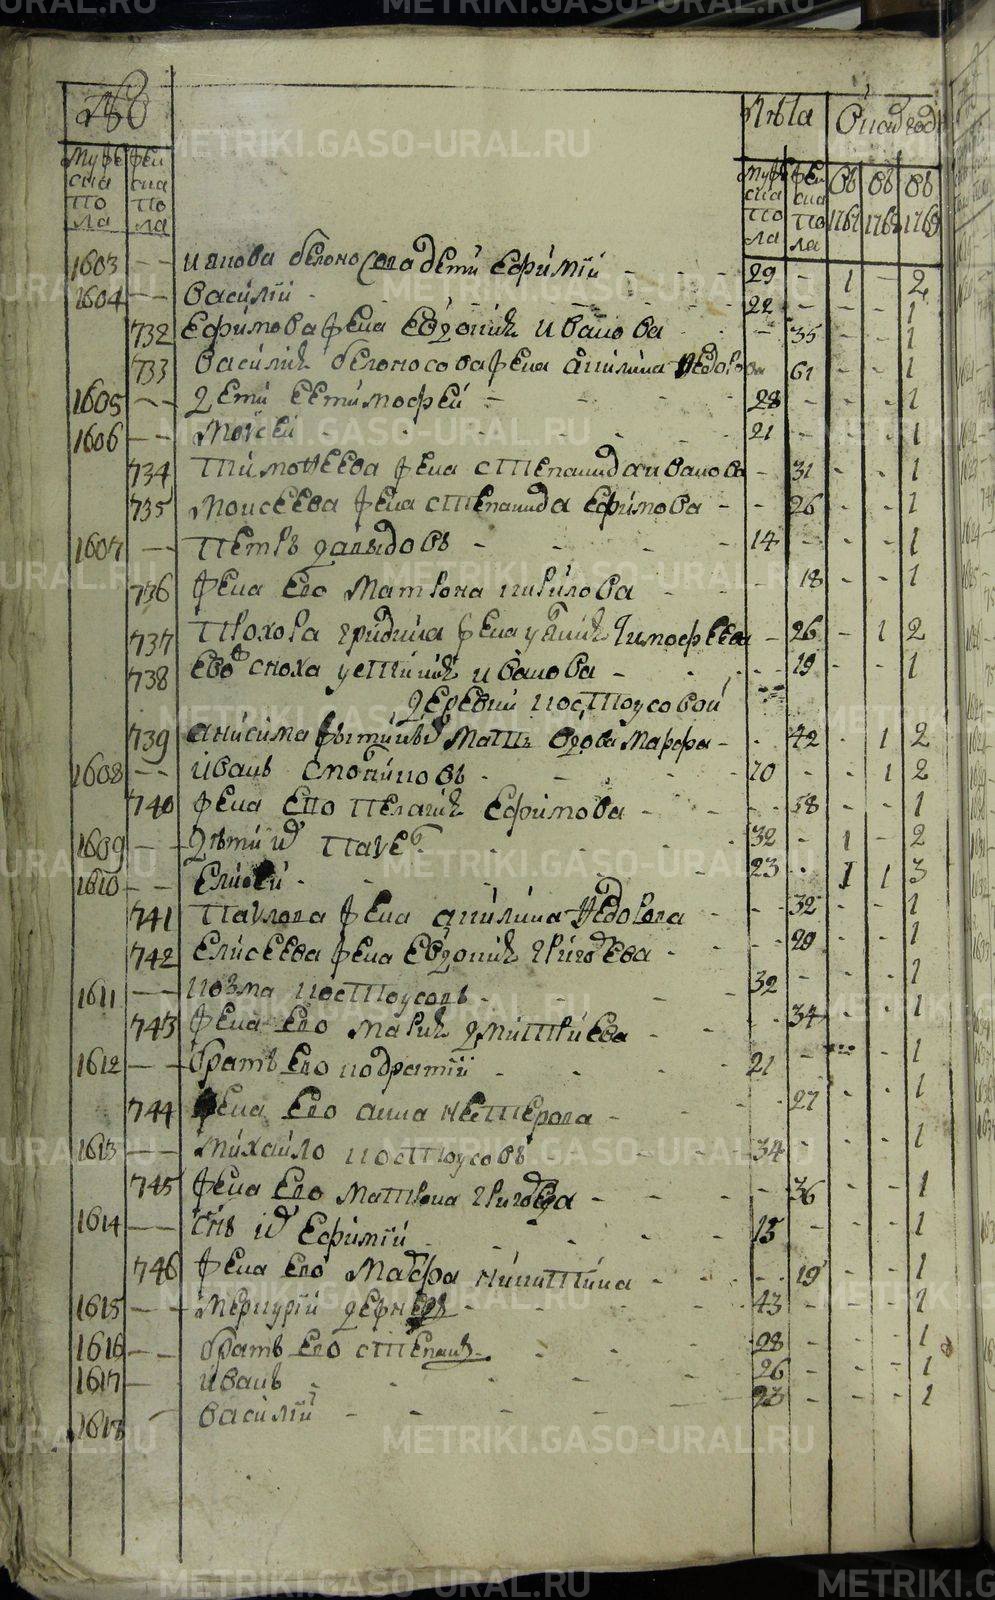 №
Лѣта
Мужеска пола
Женска пола
Мужеска пола
Женска пола
Въ 1767
Въ 1768
Въ 1769
1603 — — Иванова Белоносова дети Ефимїй - - - 29 - 1 - 2
1604 — — Василїй - 22 - - - 1
732 Ефимова жена Евдокия Иванова - - 35 - - 1
733 Василия белоносова жена Акилина Ѳедорова 61 - - 1
1605 — — Дети ее тимофей - 28 - - - 1
1606 — — Моисей - 21 - - - 1
734 Тимоѳеева жена степанида иванова - 31 - - 1
735 Моисеева жена степанида Ефимова - - 26 - - 1
1607 — — Петръ давыдовъ - 14 - - - 1
736 жена Ево Матрона кирилова - - 18 - - 1
737 Прохора жена устиния Тимофеева - 26 - 1 2
738 Ево сноха устиния иванова - - - 19 - - 1
Деревни костоусовой
739 анисима мать вдова Марфа - - 42 - 1 2
1608 — — Иванъ - 70 - - 1 2
740 жена Ево пелагия Ефимова - - 58 - - 1
1609 — — Дѣти их Павел - 32 - 1 - 2
1610 — — Елисей - 23 - 1 1 3
741 Павлова жена акилина Ѳедорова - - 32 - - 1
742 Елисеева жена Евдокия Григорьева - - 20 - - 1
1611 — — козма костоусовъ - 32 - - - 1
743 жена Ево Мария Дмитриева - - 34 - - 1
1612 — — братъ Ево кодратїй - 21 - - - 1
744 жена Ево анна нестерова - - 27 - - 1
1613 — — Михайло костоусовъ - 34 - - - 1
745 жена Ево Матрона Григорьева - - 36 - - 1
1614 — — снъ их Ефимїй - 15 - - - 1
746 жена Ево Марфа никитина - - 19 - - 1
1615 — — Меркурїй - 43 - - - 1
1616 — — братъ Ево степанъ - 28 - - - 1
1617 — Иванъ - 26 - - - 1
1618 — Василїй - 23 - - - 1
METRIKI.GASO-URAL.RU